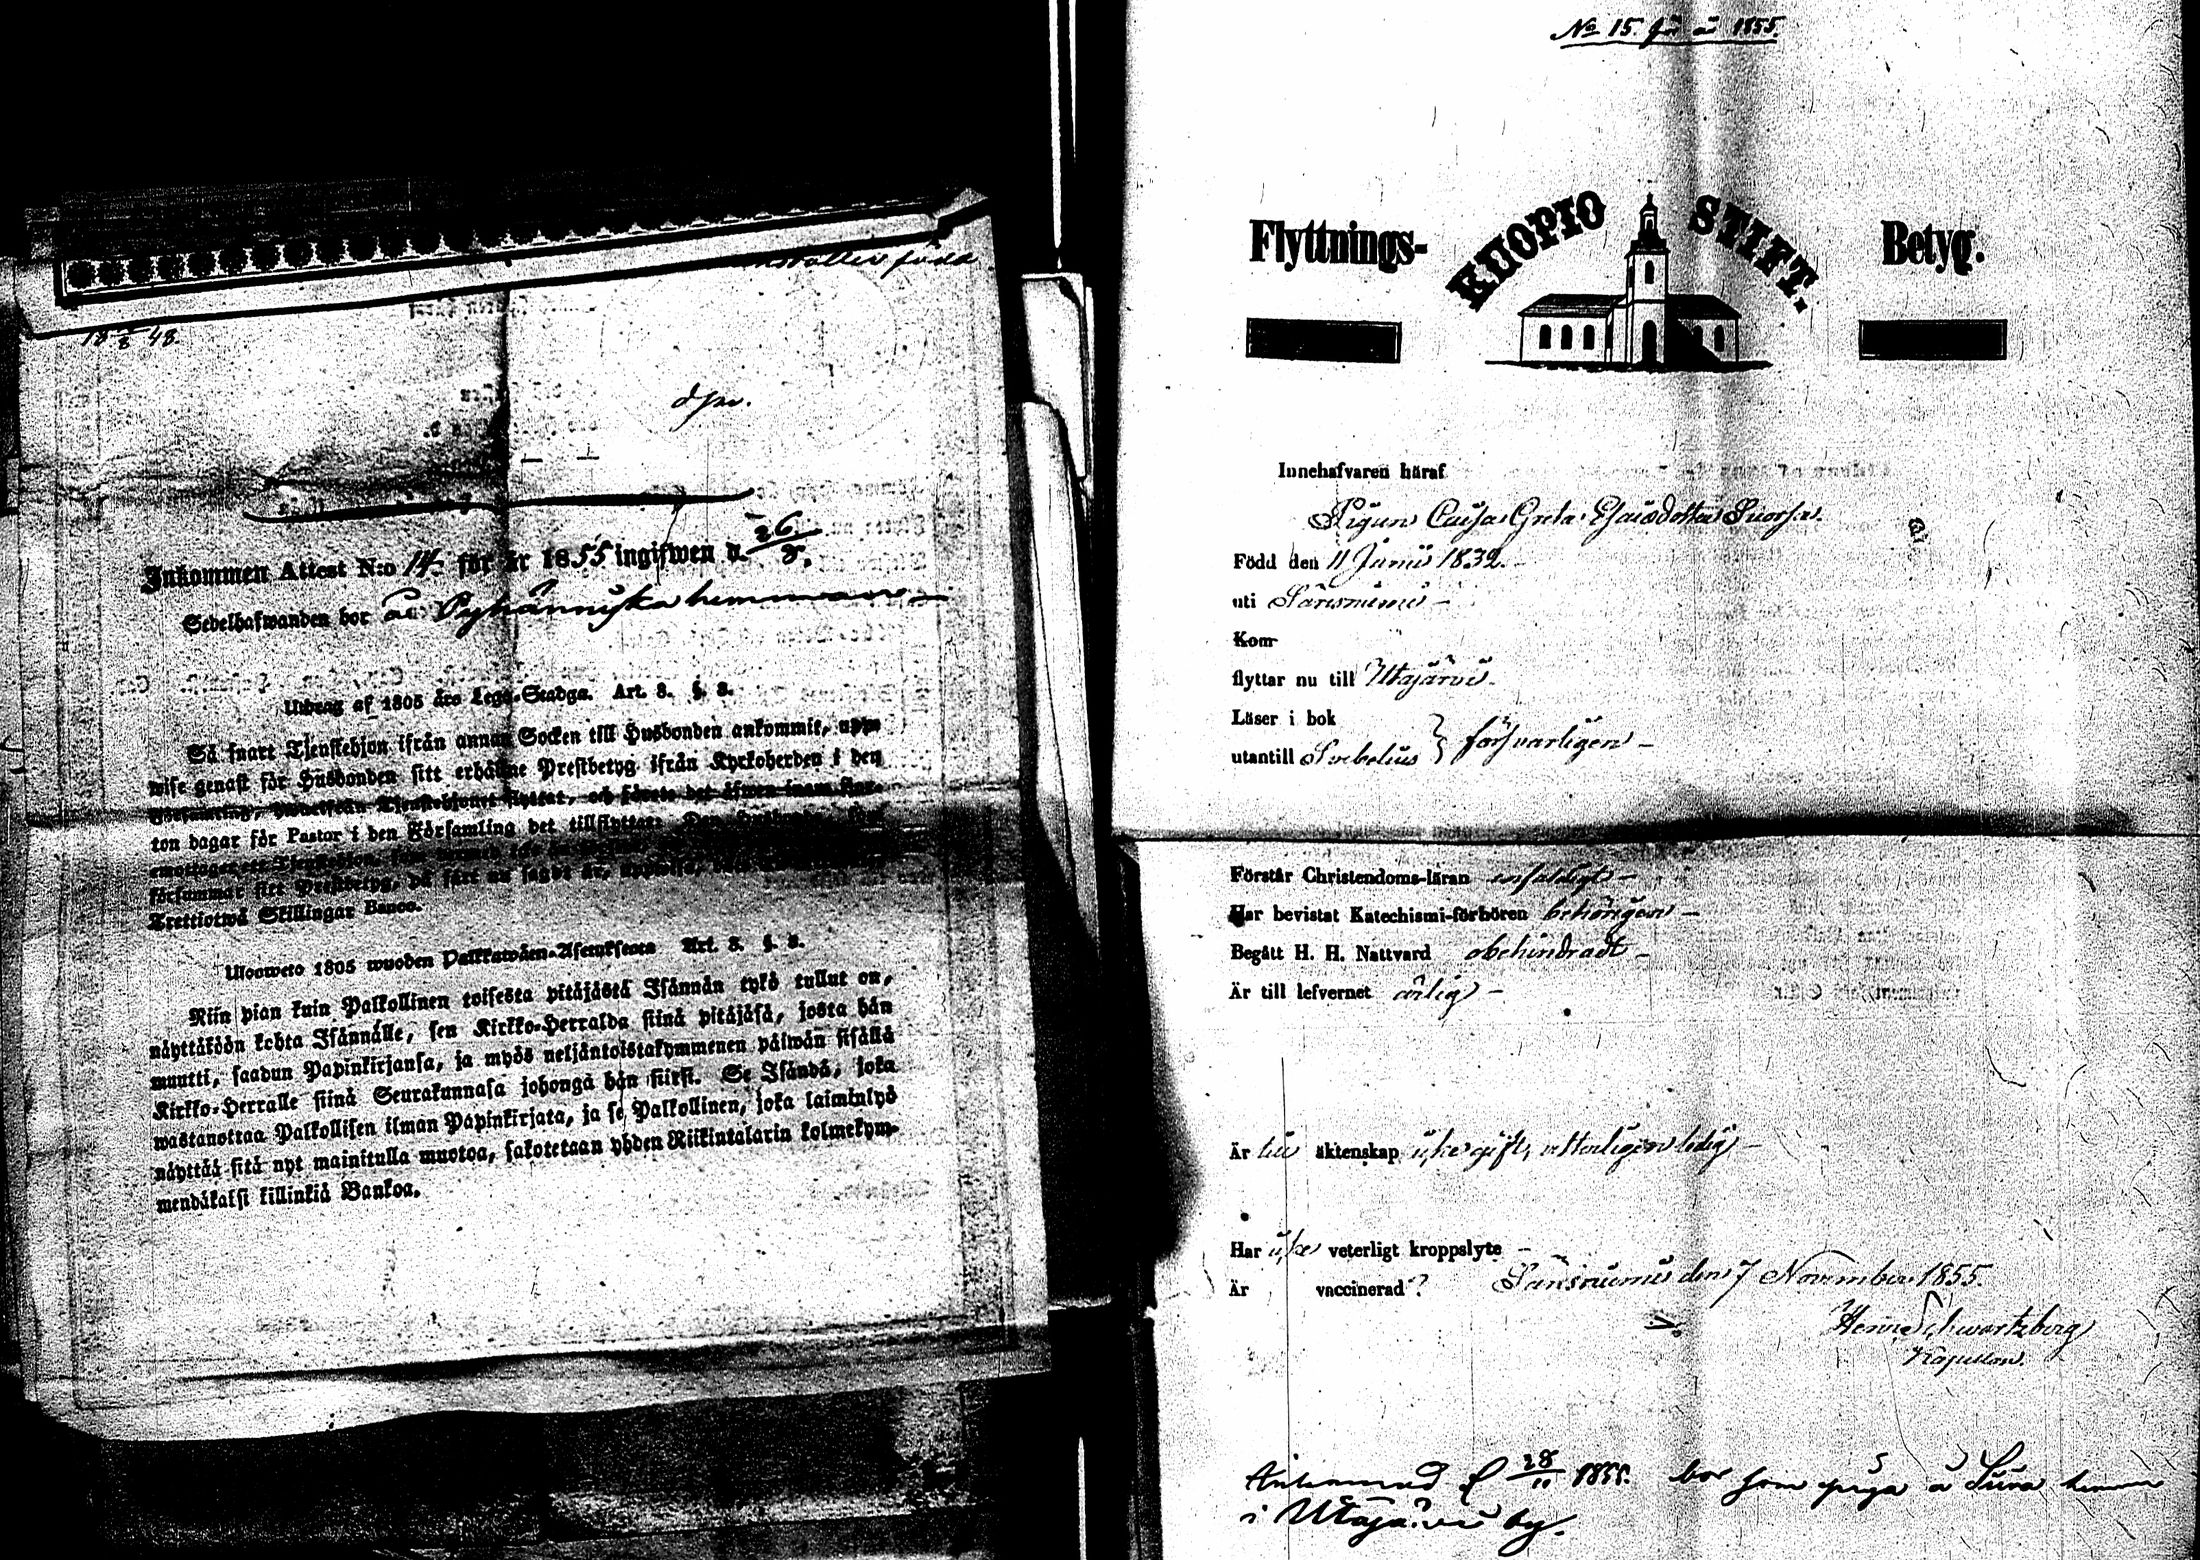 född
18 8 48
Inkommen Attest N:o 14 för år 1855 ingifwen d. 26/8.
Sedelhafwanden bor å Pyhänniska hemman
Utdrag af 1805 års Lego-Stadga. Art. 3. §. 8.
Så snart Tjenstehjon ifrån annan Socken till Husbonden ankommit, upp-
wise genast för Husbonden sitt erhållne Prestbetyg ifrån Kyrkoherden i den
Församling, hwarifrån Tjenstehjonet flyttat, och förete det äfwen inom fjor-
ton dagar för Pastor i den Församling det tillflyttar.
emottager ett Tjenstehjon
försummar sitt Prestbetyg, på sätt nu sagdt är, uppwisa,
Trettiotwå Skillingar Banco.
Uloosweto 1805 wuoden Palkkawäen-Asetuksesta Art. 3. §. 8.
Niin pian kuin Palkollinen toisesta pitäjästä Isännän tykö tullut on,
näyttäköön kohta Isännälle, sen Kirkko-Herralda siinä pitäjäsä, josta hän
muutti, saadun Papinkirjansa, ja myös neljäntoistakymmenen päiwän sisällä
Kirkko-Herralle siinä Seurakunnasa johonga hän siirsi. Se Isändä, joka
wastanottaa Palkollisen ilman Papinkirjata, ja se Palkollinen, joka laiminlyö
näyttää sitä nyt mainitulla muotoa, sakotetaan yhden Riikintalarin kolmekym-
mendäkaksi killinkiä Bankoa.
No 15. 1855.
Flyttnings- KUOPIO STIFT. Betyg.
Innehafvaren häraf
Pigan Caisa Greta Esaisdotter Suorsa.
Född den 11 Junii 1832.
uti Säresniemi
Kom
flyttar nu till Utajärvi.
Läser i bok
utantill Svebelius } försvarligen
Förstår Christendoms-läran enfaldigt
Har bevistat Katechismi-förhören behörigen
Begått H. H. Nattvard obehindradt
Är till lefvernet ärlig
Är till äktenskap icke gift, vetterligen ledig
Har icke veterligt kroppslyte
Är vaccinerad?
Säresniemi den 7 November 1855.
Henr. Schwartzberg
Kapellan.
Ankommed d 28/11 1855. bor som piga å Suva hemm
i Utajärvi by.